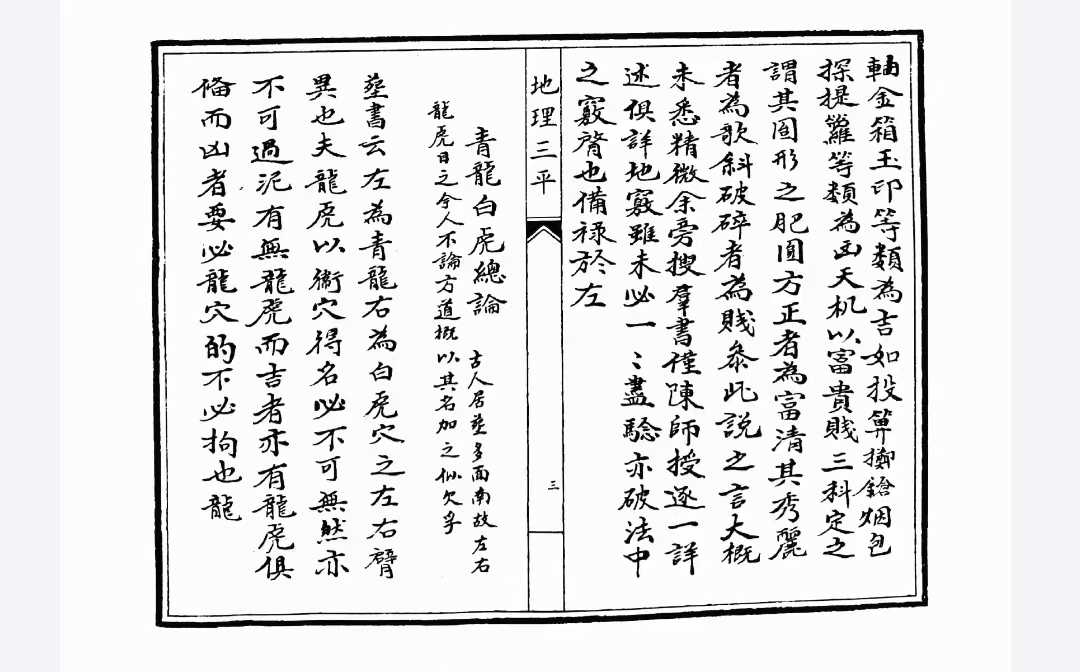 軸金箱玉印等類為吉如投筭擲鎗烟包
探提籮等類為凶天机以富貴賤三科定之
謂其囫形之肥圓方正者為富清其秀麗
者為歌斜破碎者為賤叅此說之言大概
未悉精微余旁搜羣書僅陳師授逐一詳
述俱詳地竅雖未必一〻盡驗亦破法中
之竅脔也備祿於左
地理三平
三
青龍白虎總論
古人居塟多面南故左右
龍虎目之今人不論方道概以其名加之似欠乎
塟書云左為青龍右為白虎穴之左右臂
異也夫龍虎以衛穴得名必不可無然亦
不可過泥有無龍虎而吉者亦有龍虎俱
偹而凶者要必龍穴的不必拘也龍